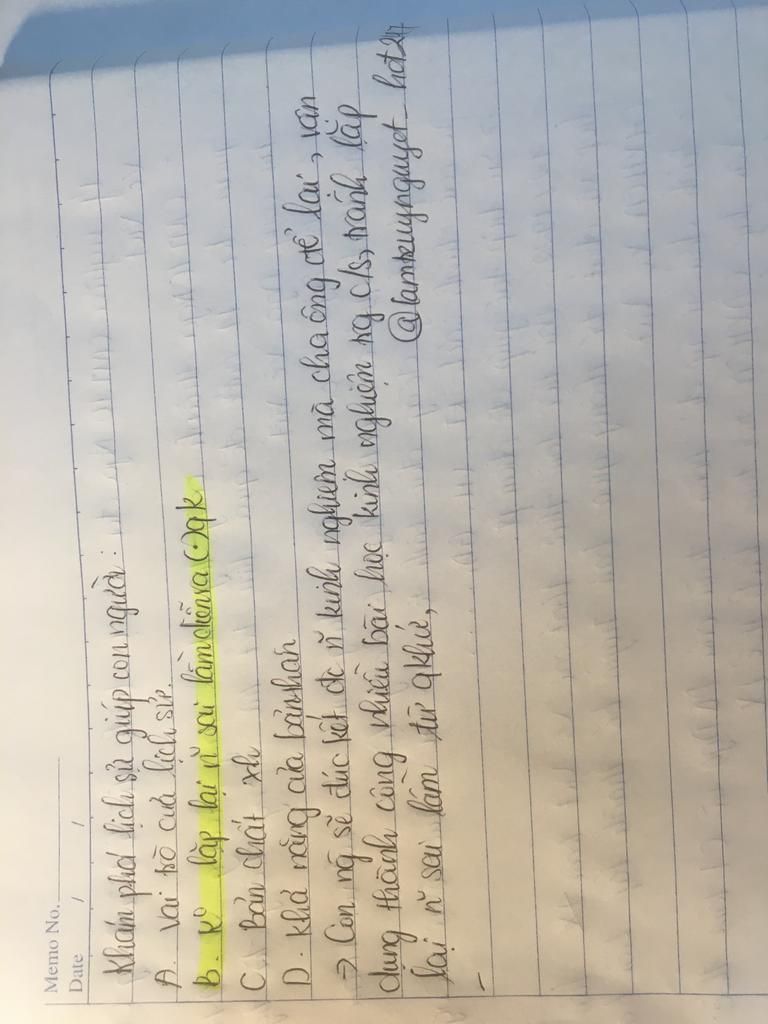 Memo No.
Date / /
Khám phá lịch sử giúp con người :
A. Vai trò của lịch sử.
B. K⁰ lặp lại n~ sai lầm diễn ra (·) qk.
C. Bản chất xh
D. Khả năng của bản thân
→ Con ng sẽ đúc kết đc n~ kinh nghiệm mà cha ông để lại, vận
dụng thành công nhiều bài học kinh nghiệm trg c/s, tránh lặp
lại n~ sai lầm từ qkhứ, @lamtuynguyet_hot247
-